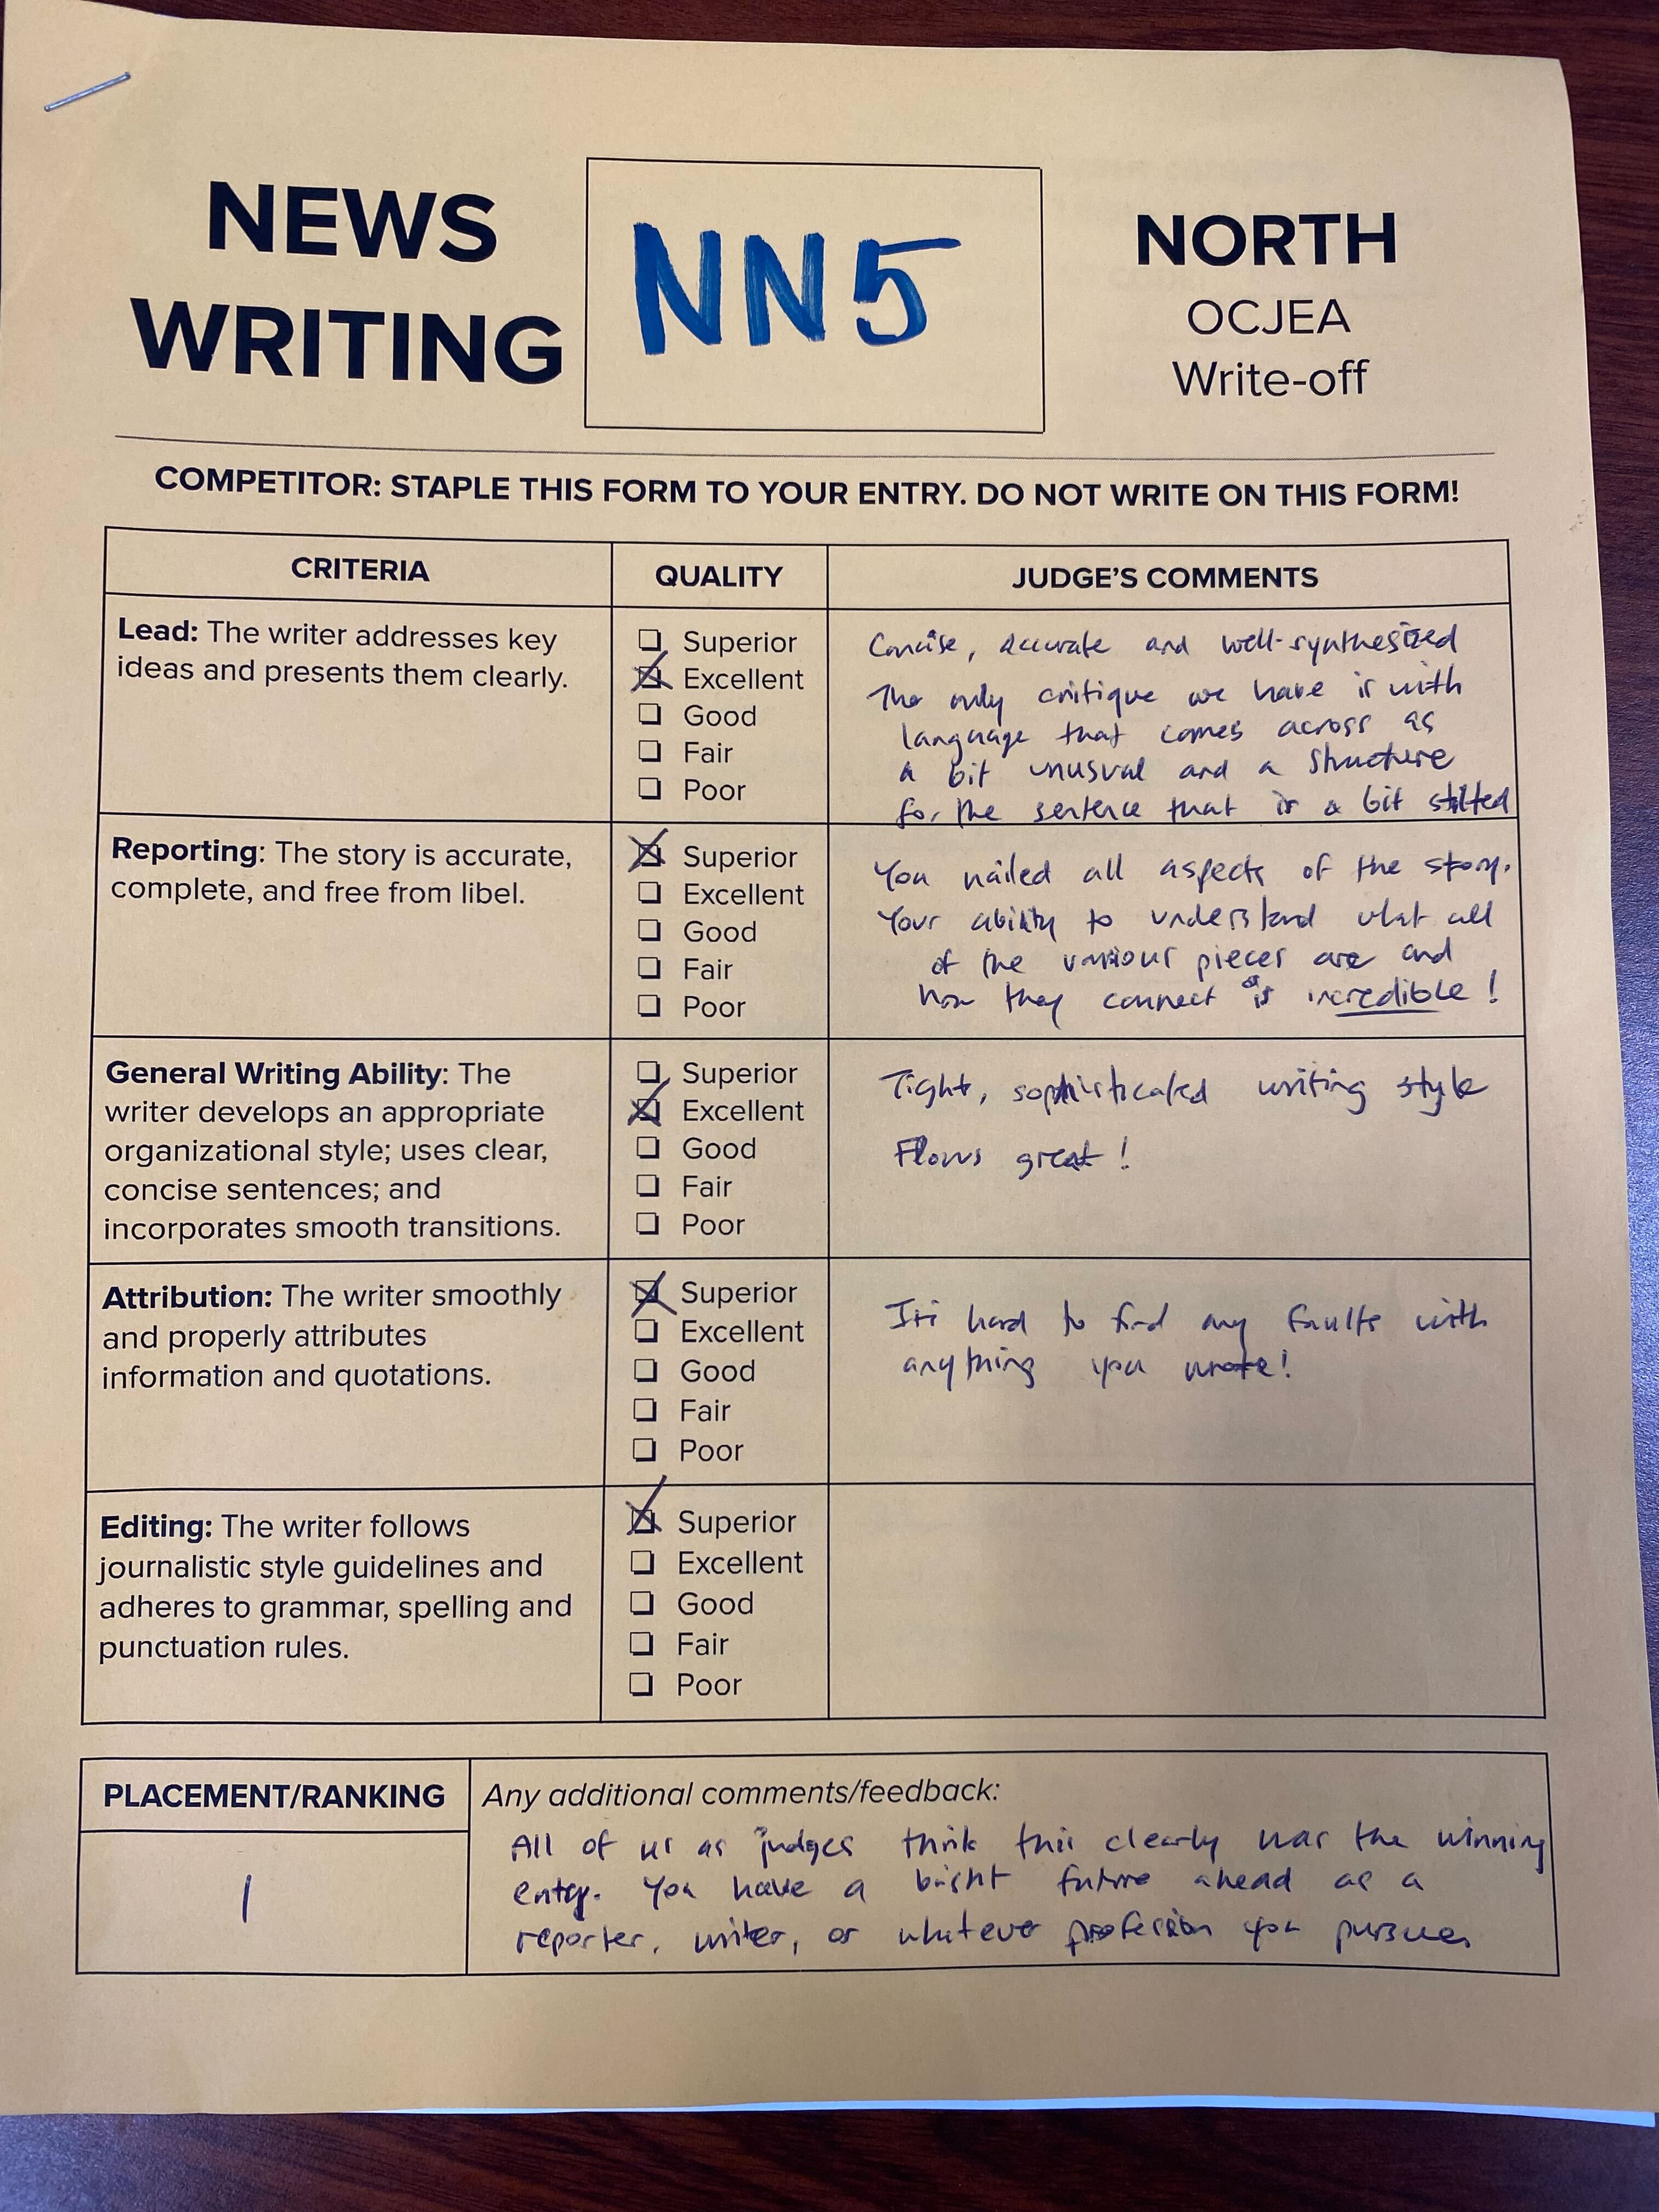 NEWS
WRITING
NN5
NORTH
OCJEA
Write-off
COMPETITOR: STAPLE THIS FORM TO YOUR ENTRY. DO NOT WRITE ON THIS FORM!
CRITERIA
QUALITY
JUDGE'S COMMENTS
Lead: The writer addresses key
ideas and presents them clearly.
Superior
Excellent
Good
Fair
Poor
Concise, accurate and well-synthesized
The only critique we have is with
language that comes across as
a bit unusual and a structure
for the sentence that is a bit stilted
Reporting: The story is accurate,
complete, and free from libel.
Superior
Excellent
Good
Fair
Poor
You nailed all aspects of the story.
Your ability to understand what all
of the various pieces are and
how they connect is incredible!
General Writing Ability: The
writer develops an appropriate
organizational style; uses clear,
concise sentences; and
incorporates smooth transitions.
Superior
Excellent
Good
Fair
Poor
Tight, sophisticated writing style
Flows great!
Attribution: The writer smoothly
and properly attributes
information and quotations.
Superior
Excellent
Good
Fair
Poor
It's hard to find any faults with
anything you wrote!
Editing: The writer follows
journalistic style guidelines and
adheres to grammar, spelling and
punctuation rules.
Superior
Excellent
Good
Fair
Poor
PLACEMENT/RANKING
1
Any additional comments/feedback:
All of us as judges think this clearly was the winning
entry. You have a bright future ahead as a
reporter, writer, or whatever profession you pursue.